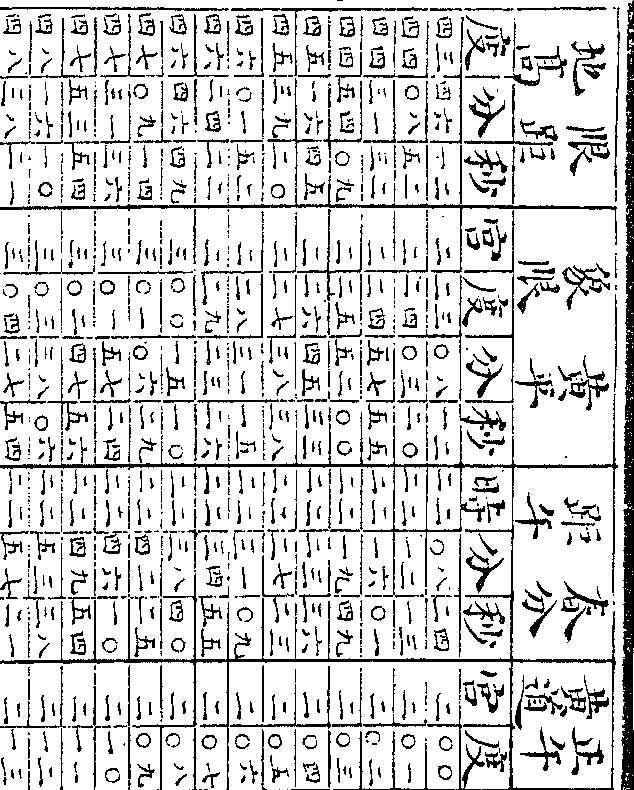 限距地高 黃平象限 春分距午 正午黃道
度 分 秒 宮 度 分 秒 時 分 秒 宮 度
四三 四六 一二 二 二三 〇八 一二 二二 〇八 二四 二 〇〇
四四 〇八 五二 二 二四 〇三 二〇 二二 一二 一三 二 〇一
四四 三一 三二 二 二四 五七 五五 二二 一六 〇一 二 〇二
四四 五四 〇九 二 二五 五二 〇〇 二二 一九 四九 二 〇三
四五 一六 四五 二 二六 四五 三三 二二 二三 三六 二 〇四
四五 三九 二〇 二 二七 三八 三八 二二 二七 二三 二 〇五
四六 〇一 五二 二 二八 三一 一五 二二 三一 〇九 二 〇六
四六 二四 二二 二 二九 二三 二六 二二 三四 五五 二 〇七
四六 四六 四九 三 〇〇 一五 一〇 二二 三八 四〇 二 〇八
四七 〇九 一四 三 〇一 〇六 二九 二二 四二 二五 二 〇九
四七 三一 三六 三 〇一 五七 二四 二二 四六 一〇 二 一〇
四七 五三 五四 三 〇二 四七 五六 二二 四九 五四 二 一一
四八 一六 一〇 三 〇三 三八 〇六 二二 五三 三八 二 一二
四八 三八 二一 三 〇四 二七 五四 二二 五七 二一 二 一三